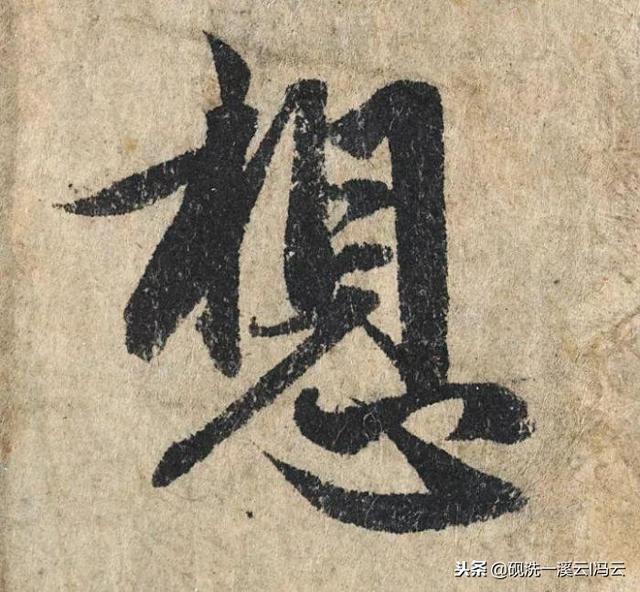 想
头条 @砚洗一溪云|冯云